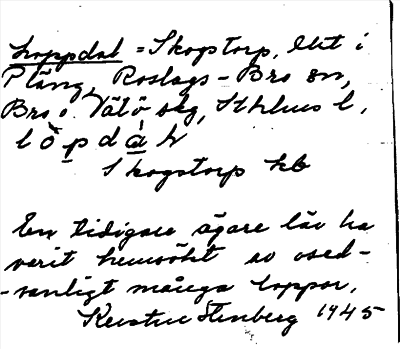 Loppdal = Skogstorp, lht i
Pläng, Roslags-Bro sn,
Bro o. Vätö skg, Sthlms l.
lòp̲dá̲ɫ
Skogstorp kb
En tidigare ägare lär ha
varit hemsökt av osed-
-vanligt många loppor.
Kerstin Stenberg 1945